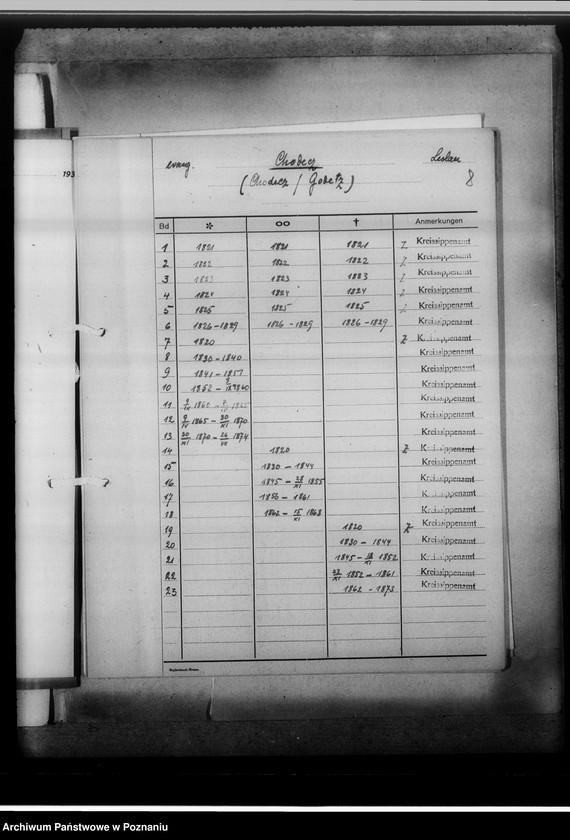 evang. Chodecz Leslau
(Chodecz / Godetz) 8
193
Bd * oo † Anmerkungen
1 1821 1821 1821 Z Kreissippenamt
2 1822 1822 1822 Z Kreissippenamt
3 1823 1823 1823 Z Kreissippenamt
4 1824 1824 1824 Z Kreissippenamt
5 1825 1825 1825 Z Kreissippenamt
6 1826-1829 1826-1829 1826-1829 Kreissippenamt
7 1820 Z Kreissippenamt
8 1830-1840 Kreissippenamt
9 1841-1851 Kreissippenamt
10 1852 - 1860 Kreissippenamt
11 1860 - 1865 Kreissippenamt
12 1865 - 30/XI 1870 Kreissippenamt
13 30/XI 1870 - 1874 Kreissippenamt
14 1820 Z Kreissippenamt
15 1830-1844 Kreissippenamt
16 1845 - 28/XI 1855 Kreissippenamt
17 - 1861 Kreissippenamt
18 1862 - 15/XI 1868 Kreissippenamt
19 1820 Z Kreissippenamt
20 1830-1844 Kreissippenamt
21 1845 - 1852 Kreissippenamt
22 1852 - 1861 Kreissippenamt
23 1862 - 1873 Kreissippenamt
Archiwum Państwowe w Poznaniu